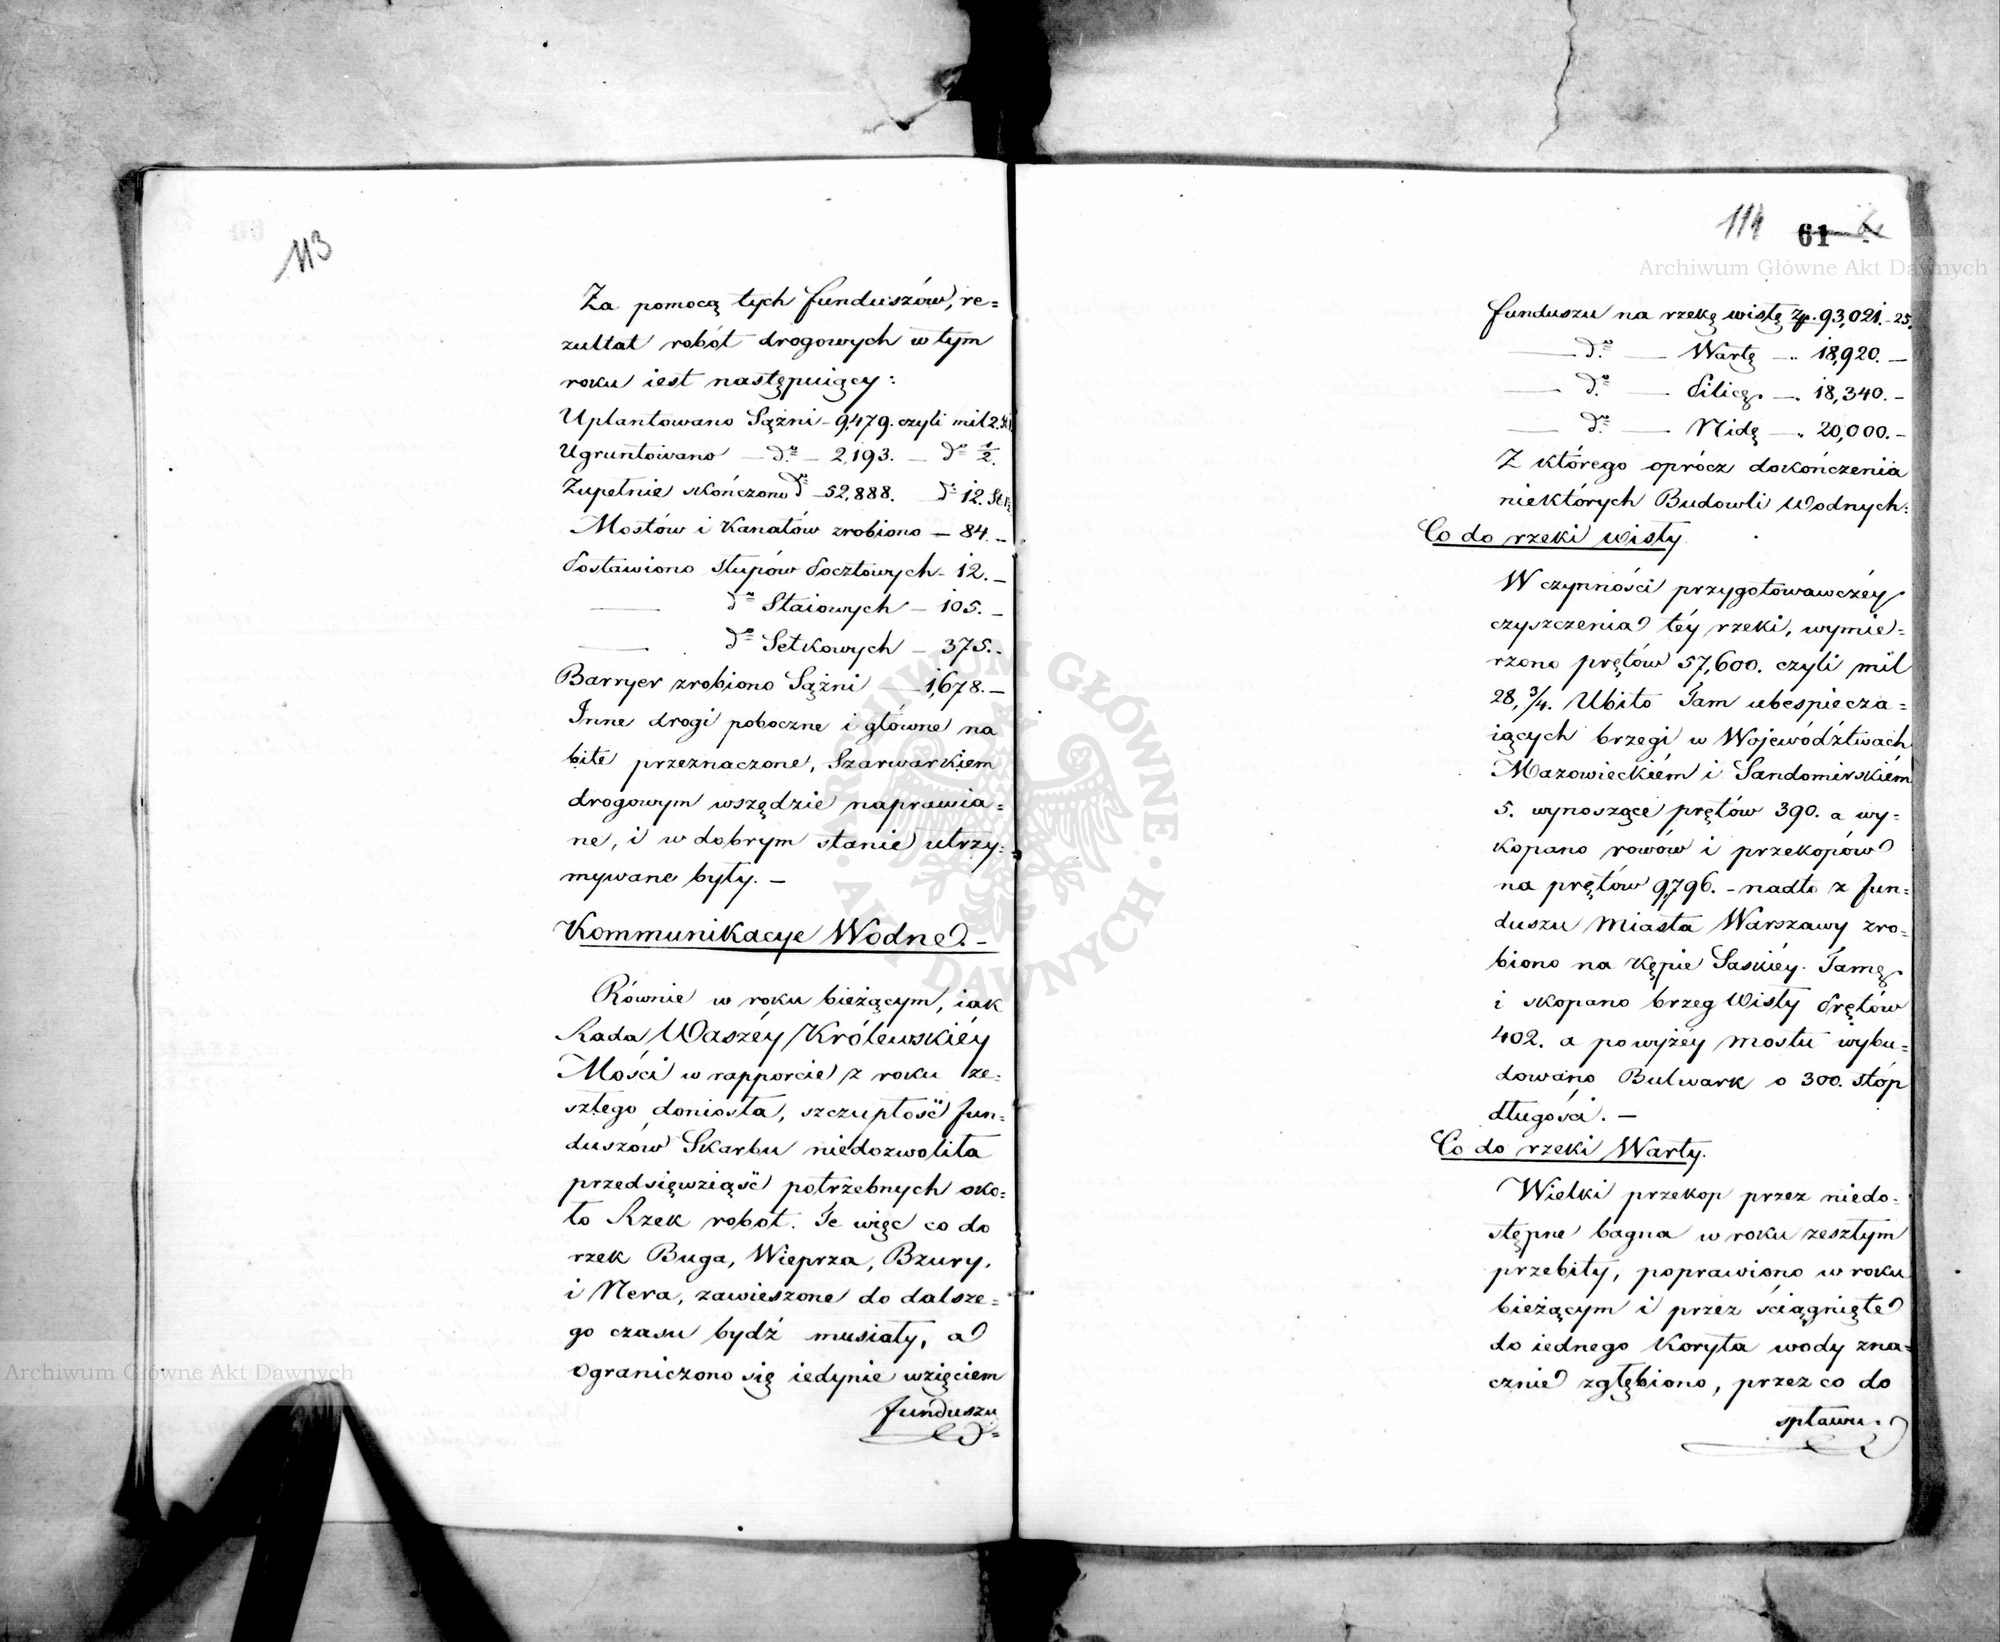 113
Za pomocą tych funduszów, re=
zultat robót drogowych w tym
roku iest następuiący:
Uplantowano Sążni - 9,479. czyli mil 2.
Ugruntowano — do — 2,193. — do ½.
Zupełnie skończono do — 52,888. do 12.
Mostów i Kanałów zrobiono — 84. —
Postawiono słupów Pocztowych - 12. —
— do Staiowych — 105. —
— do Setkowych — 375. -
Barryer zrobiono Sążni — 1,678. —
Inne drogi poboczne i główne na
bite przeznaczone, Szarwarkiem
drogowym wszędzie naprawia=
ne, i w dobrym stanie utrzy=
mywane były. —
Kommunikacye Wodne. —
Równie w roku bieżącym, iak
Rada Waszéy Królewskiéy
Mości w rapporcie z roku ze=
szłego doniosła, szczupłość fun=
duszów Skarbu niedozwoliła
przedsięwziąść potrzebnych oko=
ło Rzek robot. Te więc co do
rzek Buga, Wieprza, Bzury,
i Nera, zawieszone do dalsze=
go czasu bydź musiały, a
ograniczono się iedynie wzięciem
funduszu
114 61
funduszu na rzekę wisłę Zp. 93,021.-25.
— do — Wartę — .. 18,920. —
— do — Pilicę — .. 18,340. -
— do — Nidę — .. 20,000. -
Z którego oprócz dokończenia
niektórych Budowli Wodnych:
Co do rzeki wisły
W czynności przygotowawczéy
czyszczenia téy rzeki, wymie=
rzono prętów 57,600. czyli mil
28, 3/4. Ubito Tam ubespiecza=
iących brzegi w Województwach
Mazowieckiém i Sandomirskiém
5. wynoszące prętów 390. a wy=
kopano rowów i przekopów
na prętów 9,796. - nadto z fun=
duszu Miasta Warszawy zro=
biono na Kępie Saskiéy Tamę
i skopano brzeg Wisły Prętów
402. a powyżéy mostu wybu=
dowano Bulwark o 300. stóp
długości. —
Co do rzeki Warty.
Wielki przekop przez niedo=
stępne bagna w roku zeszłym
przebity, poprawiono w roku
bieżącym i przez ściągnięte
do iednego Koryta wody zna=
cznie zgłębiono, przez co do
spławu.
Archiwum Główne Akt Dawnych
Archiwum Główne Akt Dawnych
ARCHIWUM GŁÓWNE · AKT DAWNYCH ·